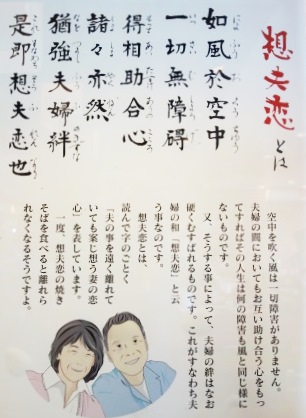 想夫恋とは
如風於空中
一切無障碍
得相助合心
諸々亦然
猶強夫婦絆
是即想夫恋也
空中を吹く風は一切障害がありません。
夫婦の間においてもお互い助け合う心をもっ
てすればその人生は何の障害も風と同じ様に
ないものです。
又、そうする事によって、夫婦の絆はなお
硬くむすばれるものです。これがすなわち夫
婦の和「想夫恋」と云
う事なのです。
想夫恋とは、
読んで字のごとく
「夫の事を遠く離れて
いても案じ想う妻の恋
心」を表しています。
一度、想夫恋の焼き
そばを食べると離れら
れなくなるそうですよ。